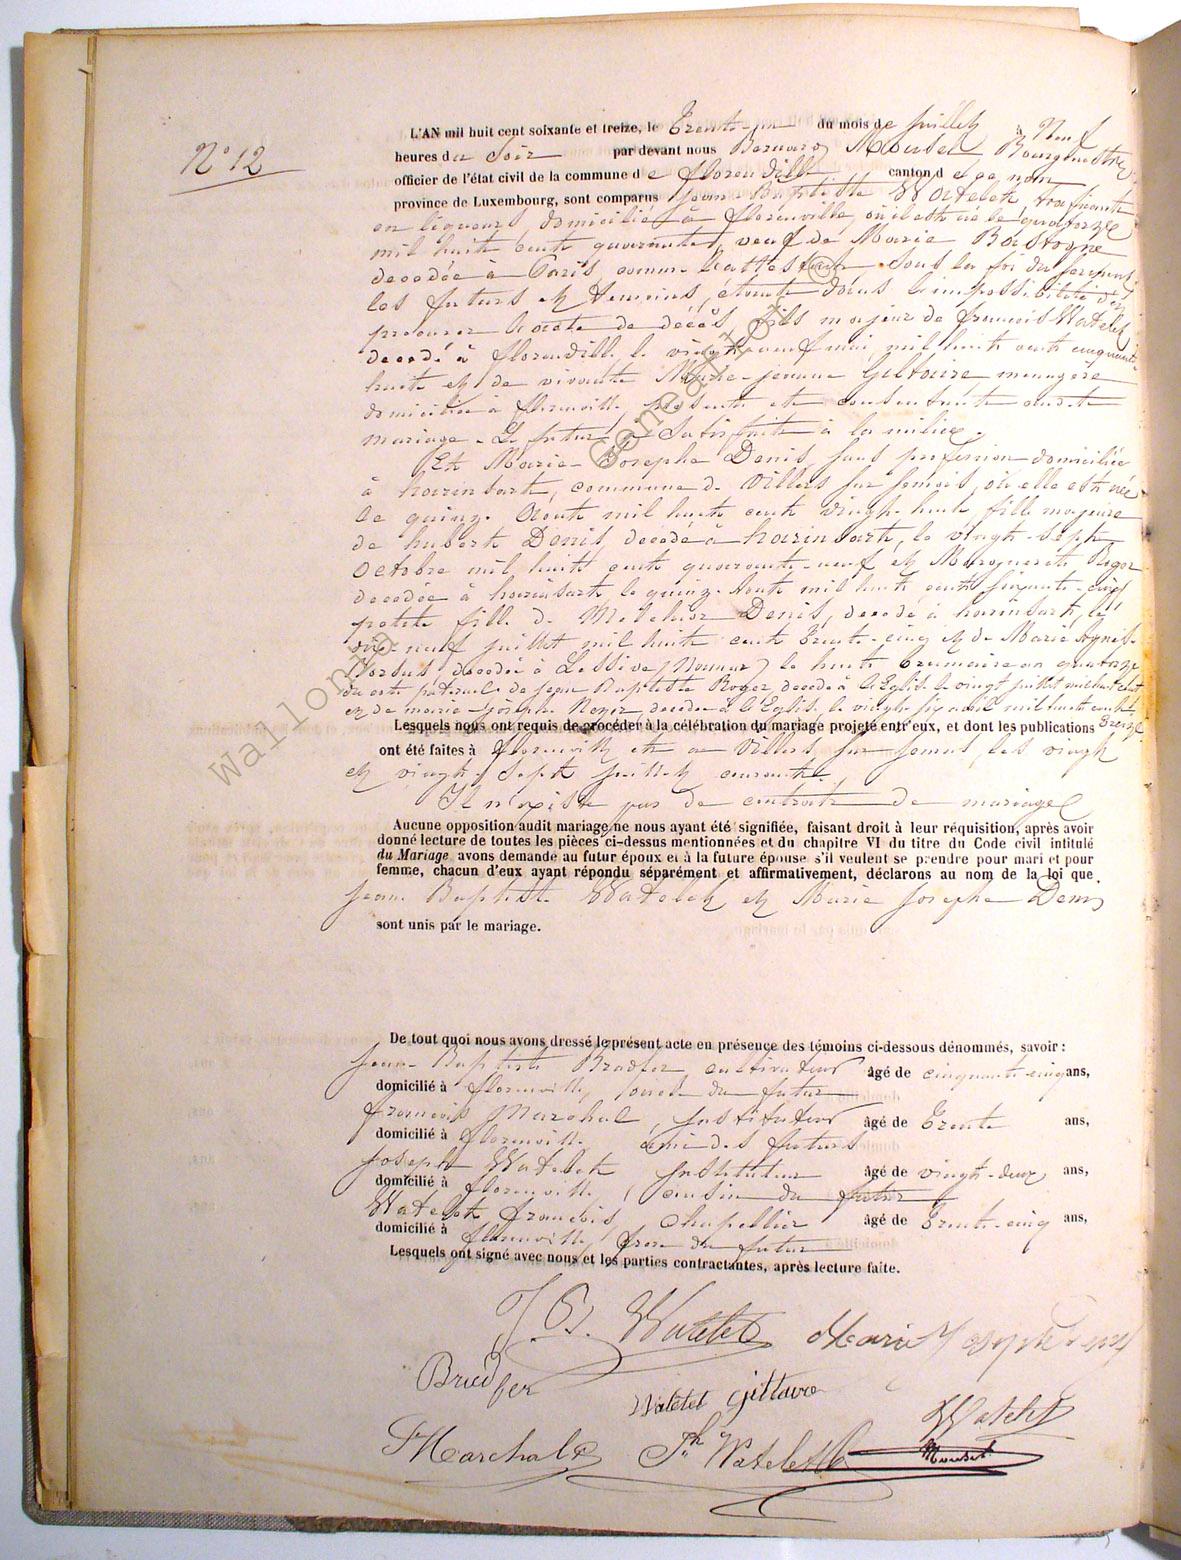 N° 12
L'AN mil huit cent soixante et treize, le Trente-un du mois de Juillet à Neuf
heures du Soir par devant nous Bernard Mousel Bourgmestre
officier de l'état civil de la commune de florenville canton d
province de Luxembourg, sont comparus Jean Baptiste Watelet, trafiquant
en liqueurs, domicilié à florenville, où il est né le quatorze
mil huit cent quarante, veuf de Marie Bastogne
décédée à Paris comme l'attestent sous la foi du serment
les futurs et temoins, étant dans l'impossibilité de
procurer l'acte de décès fils majeur de francois Watelet
décédé à florenville le vingt neuf mai mil huit cent cinquante
huit et de vivante Marie-jeanne Giltaire menagère
domiciliée à florenville, présente et consentante audit
mariage. Le futur a satisfait à la milice.
Et Marie-Josephe Denis sans profession domiciliée
à harinsart, commune de Villers sur semois, où elle est née
le quinze Aout mil huit cent vingt-huit, fille majeure
de hubert Denis décédé à harinsart, le vingt-sept
Octobre mil huit cent quarante-neuf et Marguerite Roger
décédée à harinsart le quinze Aout mil huit cent soixante-cinq
petite fille de Melchior Denis, décédé à harinsart, le
dix neuf juillet mil huit cent trente-cinq et de Marie Agnès
décédée à Lessive (Namur) le huit brumaire an quatorze
du coté paternel de jean Baptiste Roger décédé à l'Eglise le vingt juillet mil huit cent
et de marie-josephe Roger décédée à l'Eglise le vingt six avril mil huit cent
treize
Lesquels nous ont requis de procéder à la célébration du mariage projeté entr'eux, et dont les publications
ont été faites à florenville et à Villers sur semois, les vingt
et vingt sept juillet courant.
Il n'existe pas de contrat de mariage
Aucune opposition audit mariage ne nous ayant été signifiée, faisant droit à leur réquisition, après avoir
donné lecture de toutes les pièces ci-dessus mentionnées et du chapitre VI du titre du Code civil intitulé
du Mariage avons demande au futur époux et à la future épouse s'il veulent se prendre pour mari et pour
femme, chacun d'eux ayant répondu séparément et affirmativement, déclarons au nom de la loi que
Jean Baptiste Watelet et Marie Josephe Denis
sont unis par le mariage.
De tout quoi nous avons dressé le présent acte en présence des témoins ci-dessous dénommés, savoir :
Jean-Baptiste Bradfer cultivateur âgé de cinquante-cinq ans,
domicilié à florenville, oncle du futur
François Marchal, Instituteur âgé de Trente ans,
domicilié à florenville ami des futurs
Joseph Watelet Instituteur âgé de vingt-deux ans,
domicilié à florenville, cousin du futur
Watelet françois, chapellier âgé de Trente-cinq ans,
domicilié à florenville, frère du futur
Lesquels ont signé avec nous et les parties contractantes, après lecture faite.
J. B. Watelet Marie Josephe Denis
Bradfer
Watelet Giltaire
Watelet
F Marchal Jh Watelet Mousel
Wallonia Genealogy